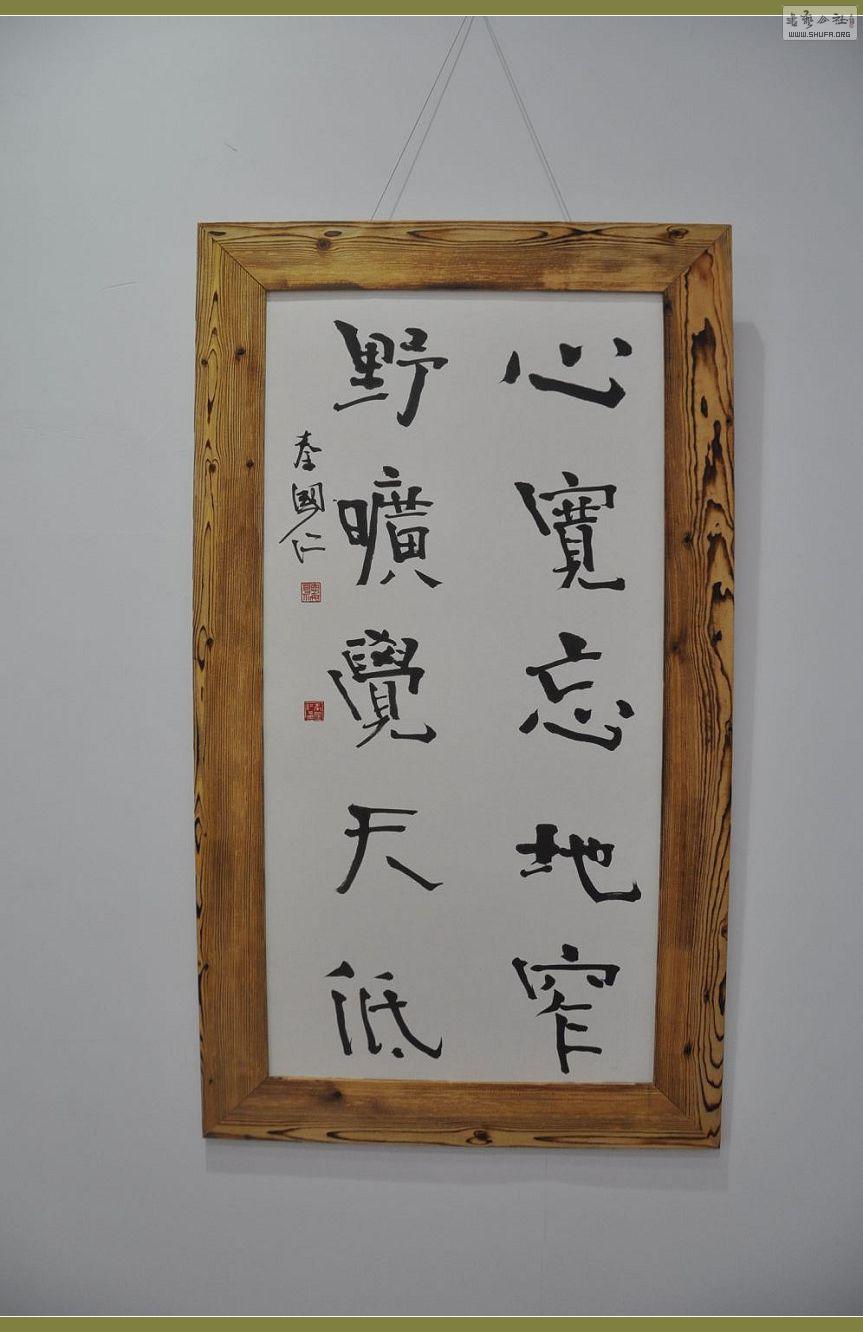 心寬忘地窄
野曠覺天低
秦國仁
書藝公社
WWW.SHUFA.ORG